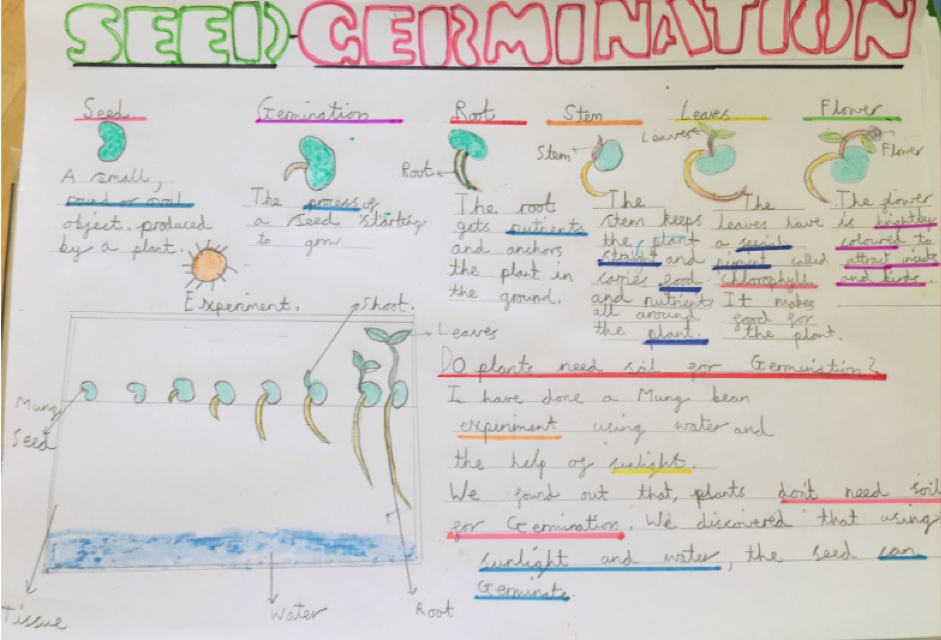 SEED GERMINATION
Seed
A small,
round or oval
object produced
by a plant.
Germination
The process of
a seed starting
to grow
Root
Root
The root
gets nutrients
and anchors
the plant in
the ground.
Stem
Stem
The
stem keeps
the plant
straight and
carries food
and nutrients
all around
the plant.
Leaves
Leaves
The
leaves have
a special
pigment called
chlorophyll
It makes
food for
the plant.
Flower
Flower
The flower
is brightly
coloured to
attract insects
and birds.
Experiment.
Shoot.
Leaves
Mung
Seed
Tissue
Water
Root
DO plants need soil for Germination?
I have done a Mung bean
experiment using water and
the help of sunlight.
We found out that, plants don't need soil
for Germination. We discovered that using
sunlight and water, the seed can
Germinate.